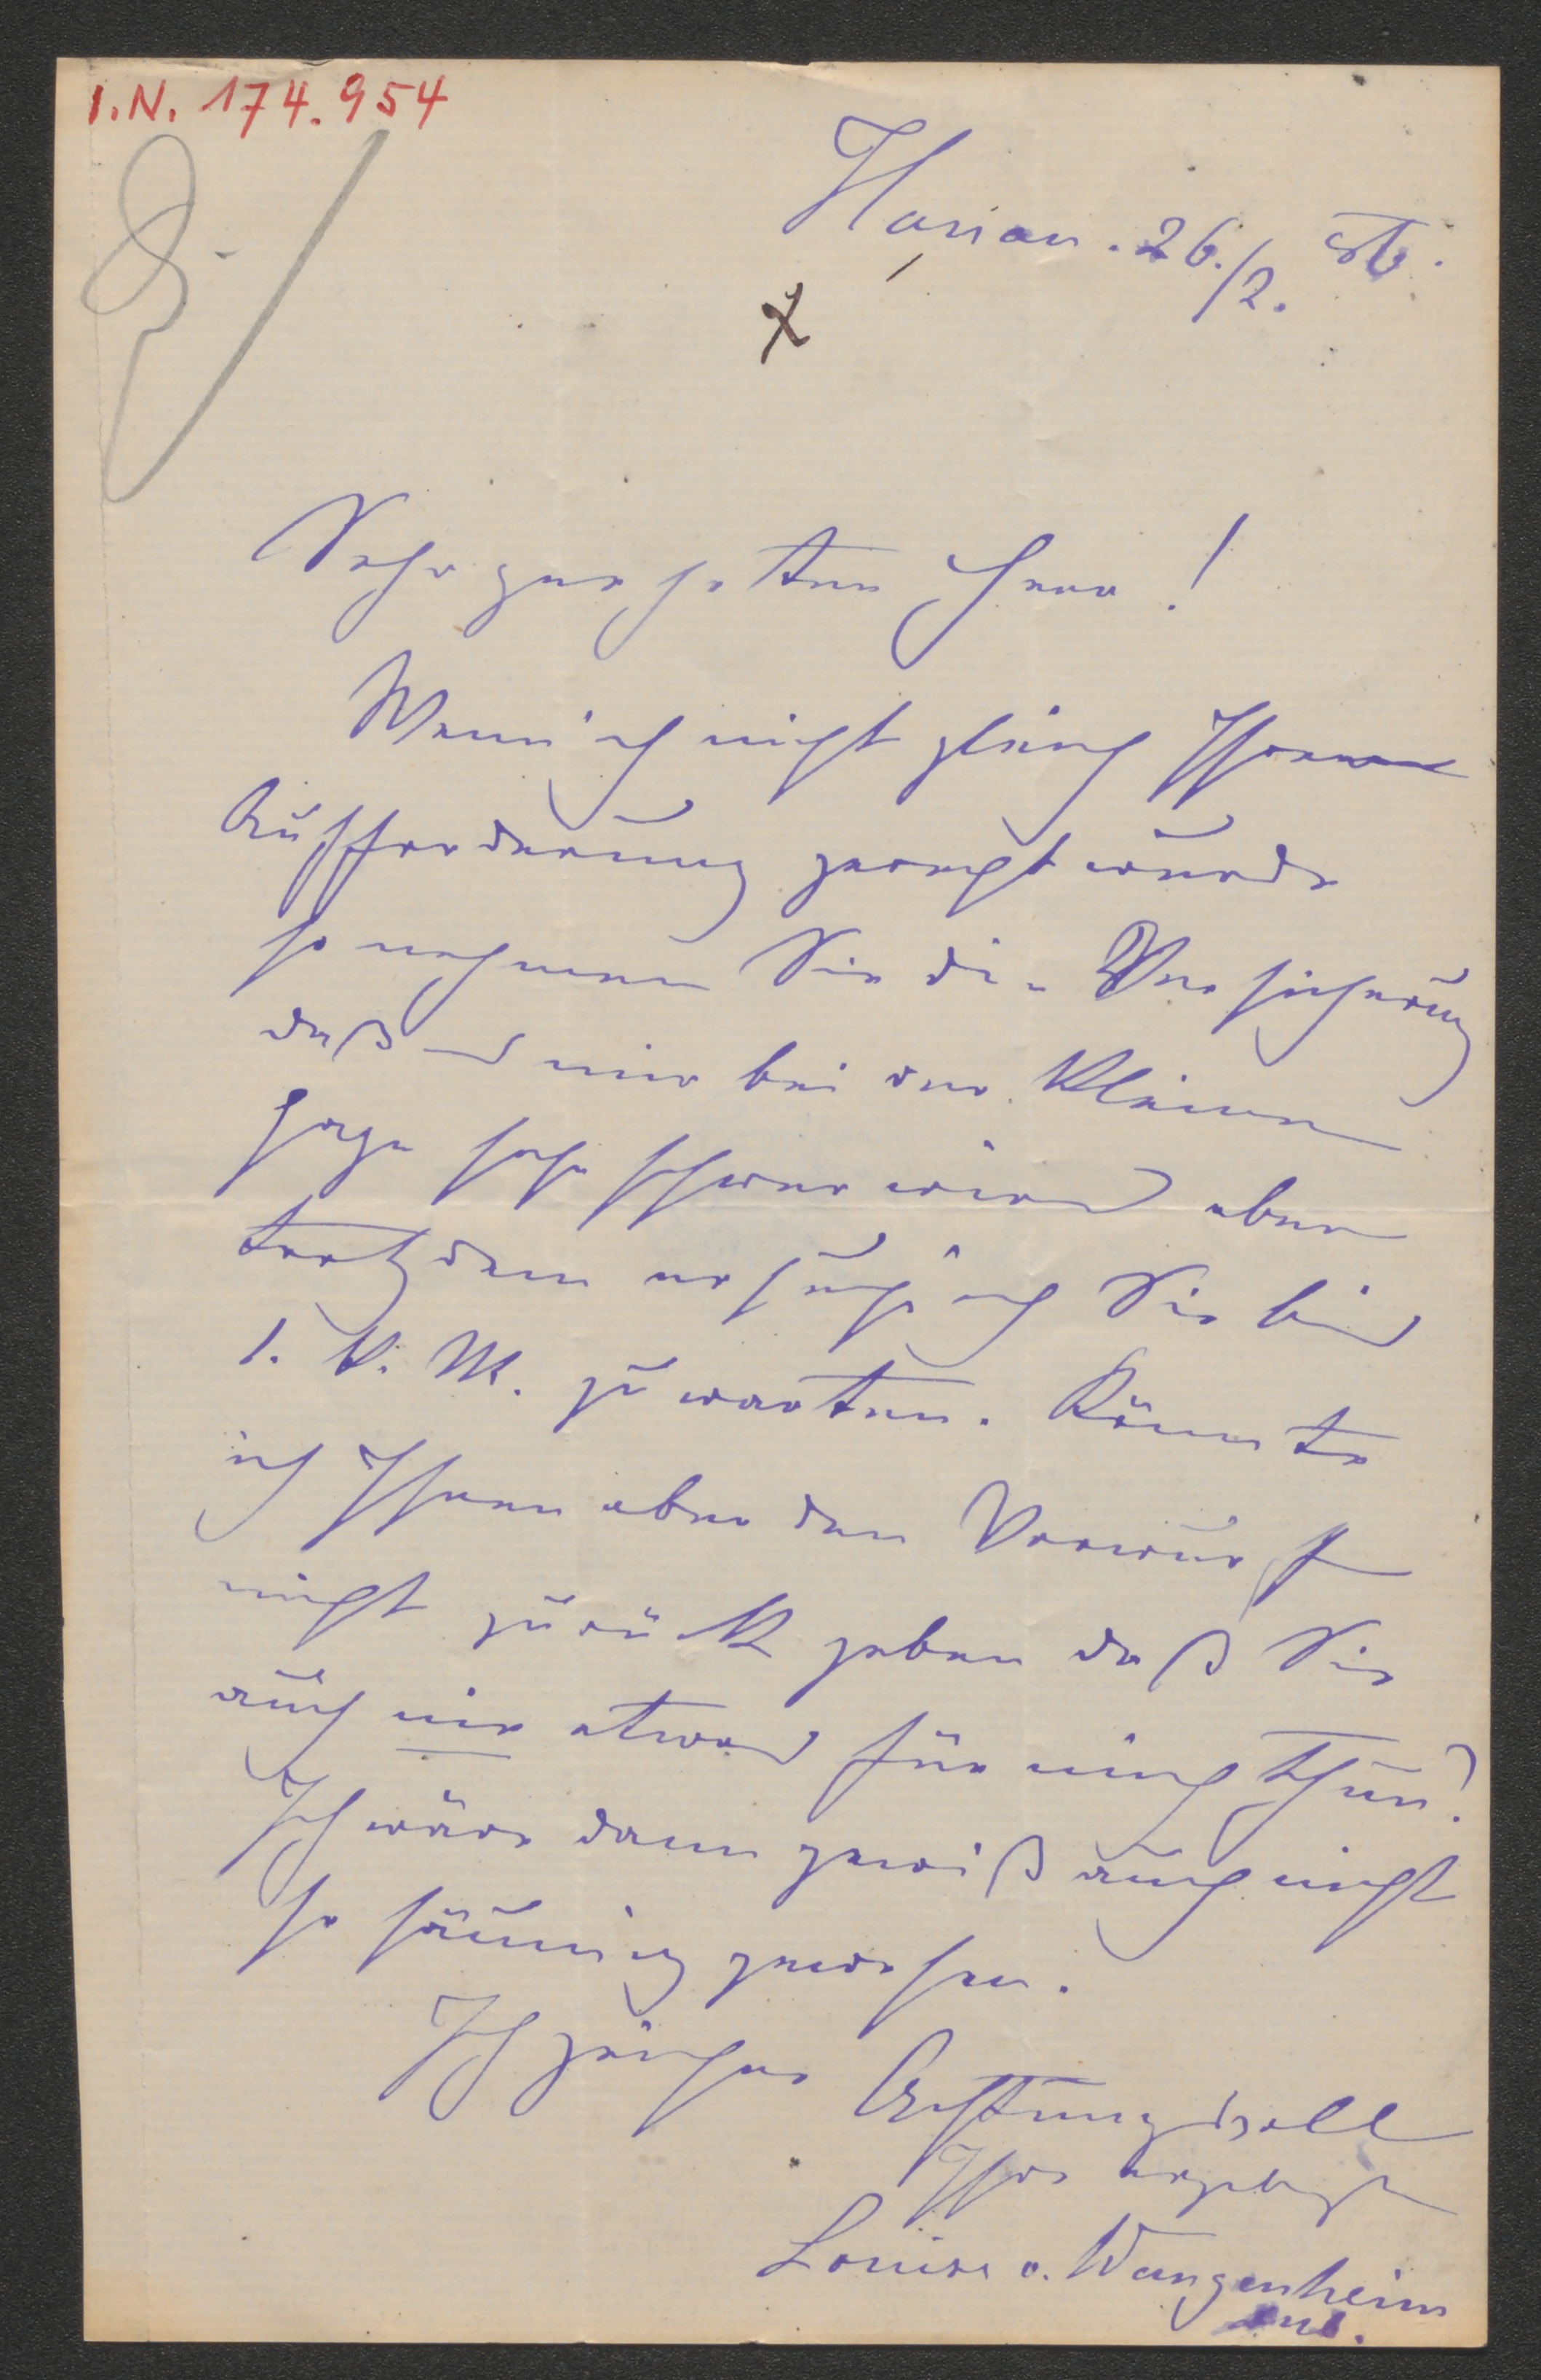 I.N. 174.954
26./2.
Sehr geehrter Herr!
Wenn ich nicht gleich Ihrer
Aufforderung gerecht wurde
so nehmen Sie die Versicherung
daß es mir bei der kleinen
Gage sehr schwer wird aber
trotzdem ersuche ich Sie bis
1. k. M. zu warten. Könnte
ich Ihnen aber den Vorwurf
nicht zurück geben daß Sie
auch nie etwas für mich thun?
Ich wäre dann gewiß auch nicht
so säumig gewesen.
Ich zeichne Achtungsvoll
Ihre ergebenste
Louise v. Wangenheim